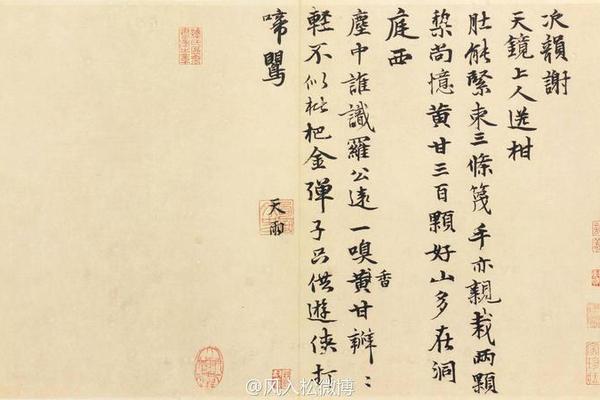 次韻謝
天鏡上人送柑
肚能緊束三條篾手亦親栽兩顆
棃尚憶黄甘三百顆好山多在洞
庭西
塵中誰識羅公遠一嗅黄甘辦〻
香
輕不似枇杷金弾子只供遊俠打
啼鸎
天雨
@风入松微博